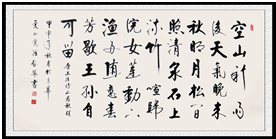 空山新雨
後天氣晚来
秋明月松間
照清泉石上
流竹喧歸
浣女蓮動下
渔舟随意春
芳歇王孫自
可留